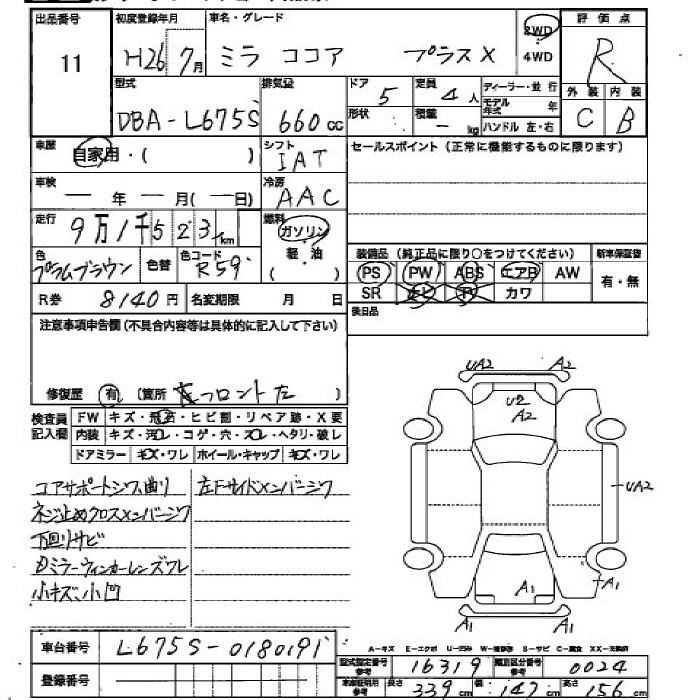 出品番号 初度登録年月 車名・グレード 2WD 評価点
11 H26/7月 ミラ ココア プラスX 4WD R
型式 排気量 ドア 定員 ディーラー・並行 外装 内装
5 4人 モデル年式 年
DBA-L675S 660cc 形状 積載 - kg ハンドル 左・右 C B
車歴 自家用・( ) シフト IAT セールスポイント(正常に機能するものに限ります)
車検 ー年ー月(ー日) 冷房 AAC
走行 9万1千523km 燃料 ガソリン
色 プラムブラウン 色替 色コード R59 軽・油 ( ) 装備品(純正品に限り○をつけてください) 新車保証書
PS PW ABS エアB AW 有・無
R券 8140円 名変期限 月 日 SR カワ
注意事項申告欄(不具合内容等は具体的に記入して下さい) 後日品
修復歴 有 (箇所 フロント左 )
検査員記入欄 FW キズ・飛石・ヒビ割・リペア跡・X要
内装 キズ・汚レ・コゲ・穴・スレ・ヘタリ・破レ
ドアミラー キズ・ワレ ホイール・キャップ キズ・ワレ
コアサポートシワ曲り 左Fサイドメンバーシワ
ネジ止めクロスメンバーシワ
下回リサビ
ミラーウィンカーレンズワレ
小キズ、小凹
UA2 A2
U2
A2
UA2
A1 A1
A1 A1
車台番号 L675S-0180191
A-キズ E-エクボ U-凹み W-補修跡 S-サビ C-腐食 XX-交換済
登録番号 型式指定番号 参考 16319 類別区分番号 参考 0024
車庫証明用 参考 長さ 339cm 幅 147cm 高さ 156cm